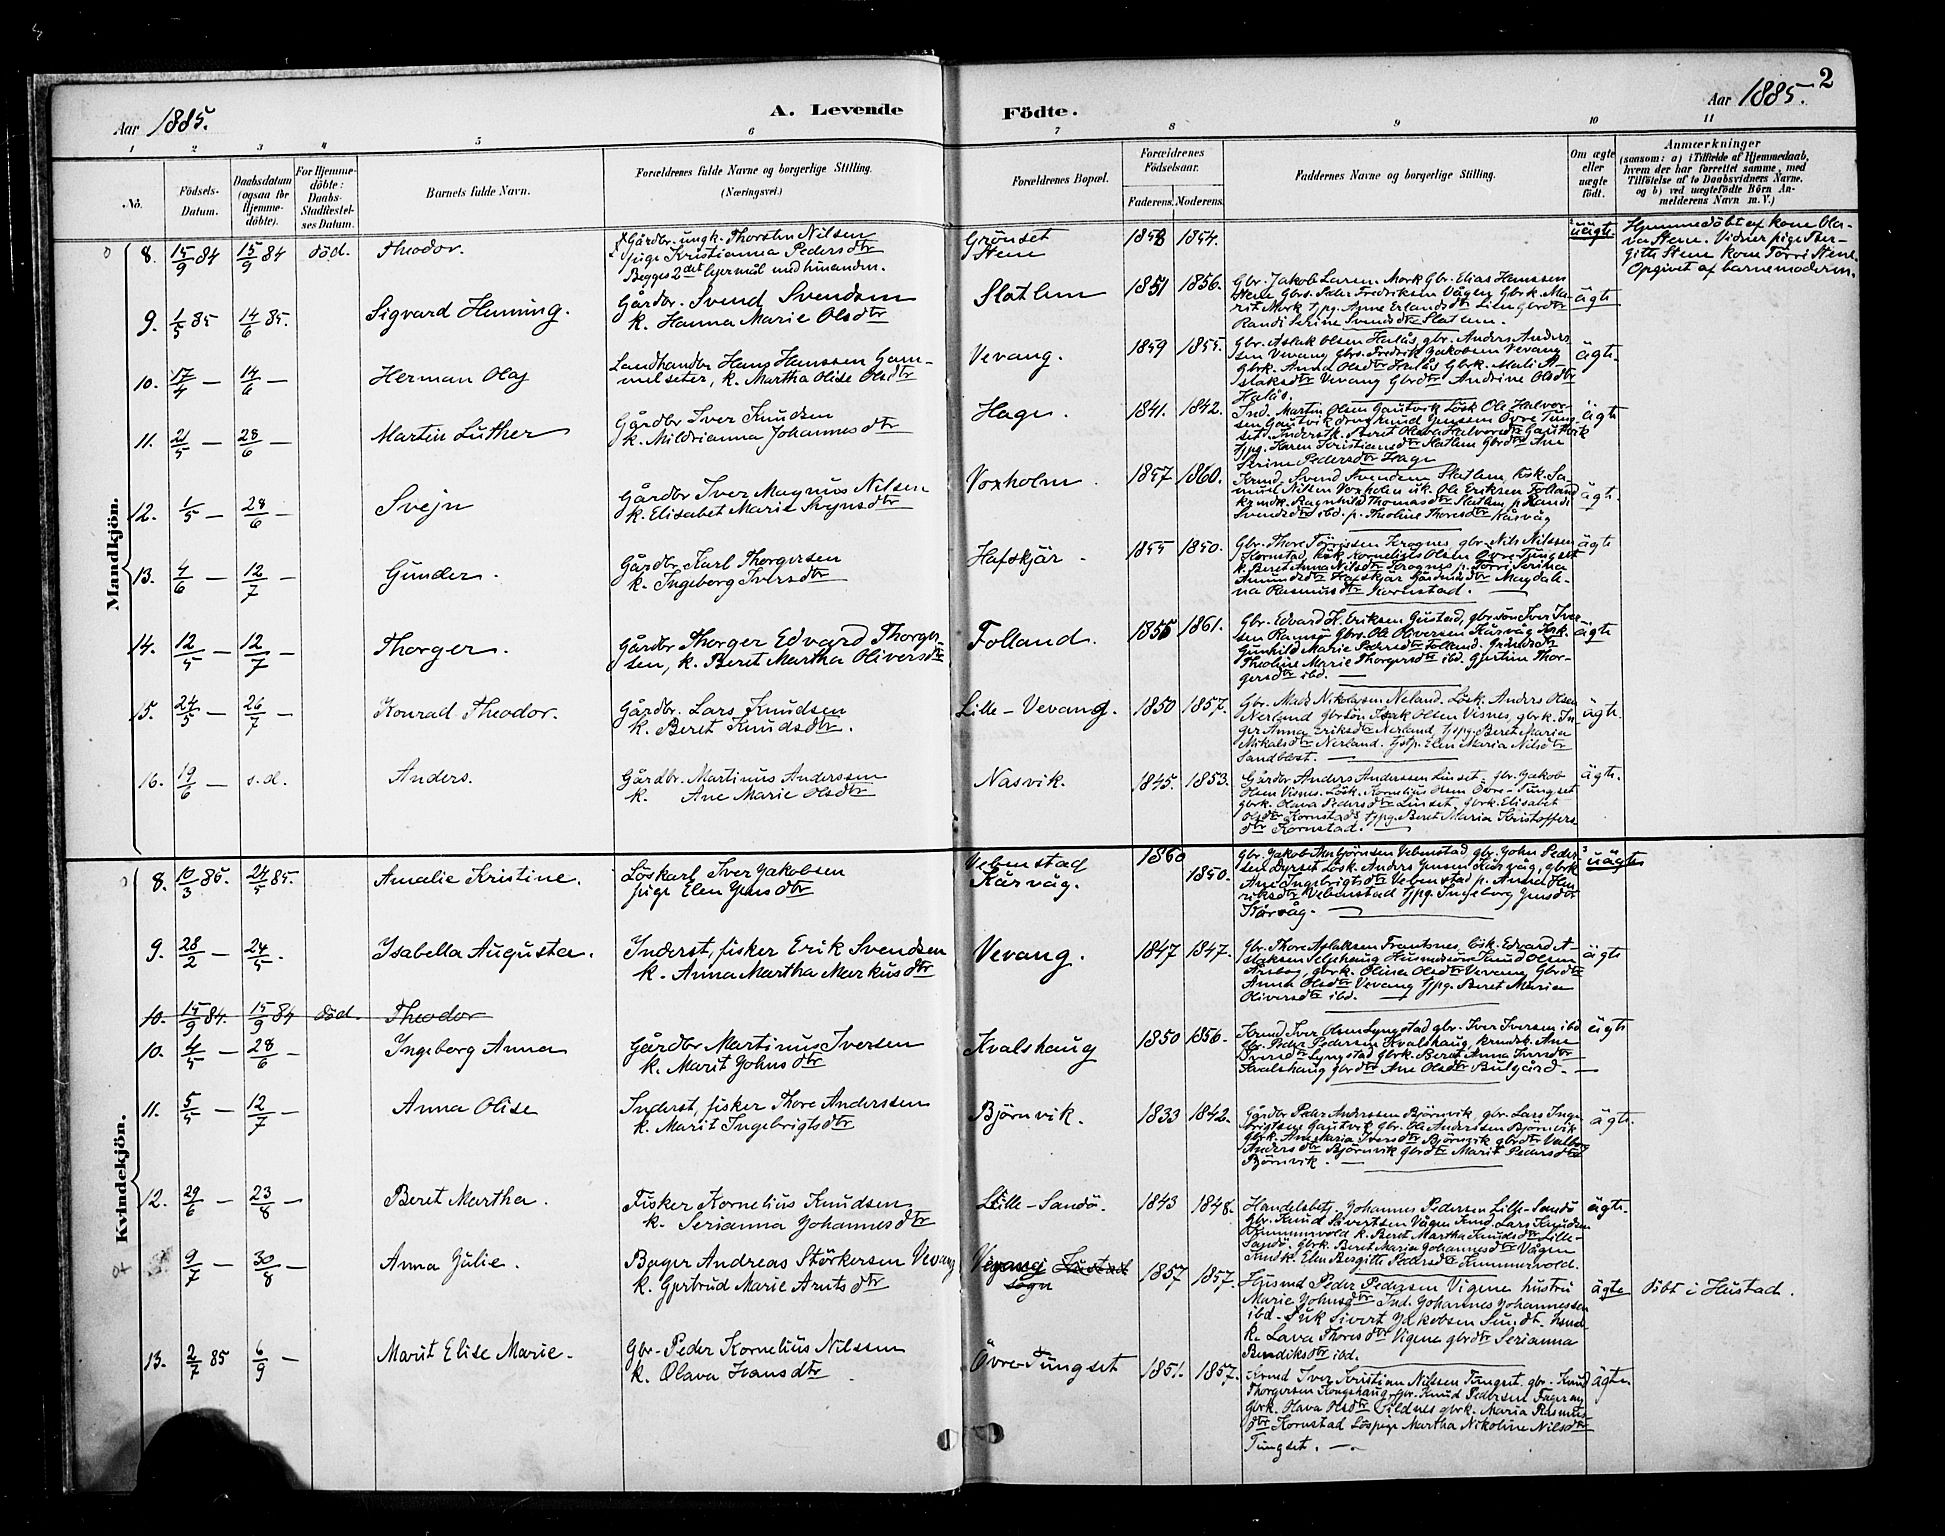 2
Aar 1885.
A. Levende
Födte.
Aar 1885.
1 2 3 4 5 6 7 8 9 10 11
No.
Födsels-
Datum.
Daabsdatum
(ogsaa for
Hjemme-
döbte).
For Hjemme-
döbte:
Daabs-
Stadfæstel-
ses Datum.
Barnets fulde Navn.
Forældrenes fulde Navne og borgerlige Stilling.
(Næringsvei.)
Forældrenes Bopæl.
Forældrenes
Födselsaar.
Faderens. Moderens.
Faddernes Navne og borgerlige Stilling.
Om ægte
eller
uægte
födt.
Anmærkninger
(saasom: a) i Tilfælde af Hjemmedaab,
hvem der har forrettet samme, med
Tilföielse af to Daabsvidners Navne,
og b) ved uegtefödte Börn An-
melderens Navn m. V.)
Mandkjön.
8. 15/9 84 15/9 84 död. Theodor.
Gårdbr. ungk. Thorsten Nilsen
pige Kristianna Pedersdtr
Begges 2det lejermål med hinanden.
Grönset
Stene
1858 1854.
uägte.
Hjemmedöbt af kone Ola-
va Stene. Vidner pige Ber-
gitte Stene kone Törri Stene
Opgivet af barnemoderen.
9. 1/5 85 14/6 85. Sigvard Henning.
Gårdbr. Svend Svendsen
k. Hanna Marie Olsdtr
Slatlem
1851 1856.
Gbr. Jakob Larsen Mork Gbr. Elias Hanssen
Stene Gbrs. Peder Fredriksen Vågen Gbrk. Ma-
rit Mork tjpg. Anne Erlandsdtr Lien Gbrdtr
Randi Serine Svendsdtr Slatlem.
ägte
10. 17/4 — 14/6 — Herman Olaj
Landhandler Hans Hanssen Gam-
melseter, k. Martha Olise Olsdtr
Vevang.
1859 1855.
Gbr. Aslak Olsen Halås, gbr. Anders Anders
sen Vevang Gbrs. Fredrik Jakobsen Vevang
Gbrk. Anna Olsdtr Halås Gbrk. Mali A-
slaksdtr Vevang Gbrdtr Andrine Olsdtr
Halås.
ägte.
11. 21/5 — 28/6 — Martin Luther
Gårdbr Iver Knudsen
k. Mildrianna Johannesdtr
Hage.
1841. 1842.
Ind. Martin Olsen Gautvik Lösk Ole Halvor-
sen Gautvik Knud Jenssen Övre Tung-
set. Inderstk. Beret Olava Halvorsdtr Gautvik
tjpg. Karen Kristiansdtr Slatlem Gbrdtr Ane
Serine Pedersdtr Hage
ägte
12. 1/5 — 28/6 — Svejn
Gårdbr Iver Magnus Nilsen
k. Elisabet Marie Svejnsdtr
Voxholm.
1857 1860.
Krmd. Svend Svendsen Slatlem, lösk. Sa-
muel Nilsen Voxholm uk. Ole Eriksen Folland
krmdk. Ragnhild Thomasdtr Slatlem p. Randi
Svendsdtr ibd. p. Theoline Thoresdtr Kårvåg
ägte.
13. 4/6 — 12/7 — Gunder.
Gårdbr Karl Thorgersen
k. Ingeborg Iversdtr
Hafskjär.
1855 1850.
Gbr. Thore Törrissen Krognes, gbr. Nils Nilssen
Kornstad, lösk Kornelius Olsen Övre Tungset
k. Beret Anna Nilsdtr Krognes p. Törri Serina
Amundsdtr Hafskjär Gårdmdsdtr Magdale-
na Rasmusdtr Kornstad.
ägte
14. 12/5 — 12/7 — Thorger.
Gårdbr Thorger Edvard Thorger-
sen, k. Beret Martha Oliversdtr
Folland.
1855 1861.
Gbr. Edvard H. Eriksen Gustad, gbrsön Iver Iver-
sen Ramsö Gbrs. Ole Oliversen Kårvåg
Gunhild Marie Pedersdtr Folland.
Theoline Marie Thorgersdtr ibd. Gjertine Thor-
gersdtr ibd.
ägte
15. 24/5 — 26/7 — Konrad Theodor.
Gårdbr. Lars Knudsen
k. Beret Knudsdtr.
Lille-Vevang.
1850 1857.
Gbr. Mads Nikolajsen Neland. Lösk. Anders Olsen
Nerland gbrsön Isak Olsen Visnes, gbrk. In-
ger Anna Eriksdtr Nerland, tjpg. Beret Maria
Mikalsdtr Nerland. tjstp. Elen Maria Nilsdtr
Sandblåst.
ägte.
16. 19/6 — s.d. Anders.
Gårdbr. Martinus Anderssen
k. Ane Marie Olsdtr
Nasvik.
1845. 1853.
Gårdbr Anders Anderssen Linset, gbr. Jakob
Olsen Visnes. Lösk. Kornelius Olsen Övre-Tungset
gbrk. Olava Pedersdtr Linset, gbrk. Elisabet
Olsdtr Kornstad tjpg. Beret Maria Kristoffers
dtr Kornstad.
ägte.
Kvindekjön.
8. 10/3 85. 24/5 85. Amalie Kristine.
Löskarl Iver Jakobsen
pige Elen Jensdtr
Vebenstad
Kårvåg.
1860 1850.
Gbr. Jakob Asbjörnsen Vebenstad, gbr. John Peder-
sen Dyrset Lösk. Anders Jensen Kårvåg, gbrk
Ane Ingebrigtsdtr Vebenstad p. Anna Hen-
riksdtr Vebenstad tjpg. Ingeborg Jensdtr
Kårvåg.
uägte
9. 28/2 — 24/5. Isabella Augusta.
Inderst, fisker Erik Svendsen
k. Anna Martha Markusdtr
Vevang.
1847 1847.
Gbr. Thore Aslaksen Frantsnes, lösk. Edvard A-
slaksen Seljehaug Husmdsön Knud Olsen
Årsbog, gbrk. Olina Olsdtr Vevang Gbrdtr
Anna Olsdtr Vevang tjpg. Beret Maria
Oliversdtr ibd.
ägte
10. 15/9 84. 15/9 84 död. Theodor
10. 4/5 — 28/6 — Ingeborg Anna
Gårdbr Martinus Iversen
k. Marit Johnsdtr
Kvalshaug
1850 1856.
Krmd Iver Olsen Lyngstad gbr. Iver Iversen ibd
Gbr. Peder Pedersen Kvalshaug, krmdk. Ane
Iversdtr Lyngstad Gbrk. Beret Anna Iversdtr
Kvalshaug gbrdtr Ane Olsdtr Bulgård.
ägte
11. 5/5 — 12/7 — Anna Olise
Inderst, fisker Thore Anderssen
k. Marit Ingebrigtsdtr
Björnvik.
1833 1842.
Gårdbr Peder Anderssen Björnvik, gbr. Lars Inge-
brigtsen Gautvik Gbr. Ole Anderssen Björnvik
Gbrk. Ane Maria Iversdtr Björnvik gbrdtr Valborg
Andersdtr Björnvik Gbrdtr Marit Pedersdtr
Björnvik.
ägte.
12. 29/6 — 23/8 — Beret Martha.
Fisker Kornelius Knudsen
k. Serianna Johannesdtr
Lille-Sandö.
1843 1848.
Handelsbetj. Johannes Pedersen Lille-Sandö
Gbr. Knud Sivertsen Vågen Krmd. Lars Knudsen
Hummervold k. Beret Martha Knudsdtr Lille-
Sandö. Gbrk. Beret Maria Johannesdtr Vågen
Krmdk. Elen Bergitte Pedersdtr Hummervold.
ägte.
9/7 — 30/8 — Anna Julie.
Bager Andreas Störkersen Vevang
k. Gjertrud Marie Arntsdtr
Vevang Hustad
sogn
1857 1857.
Husmd Peder Pedersen Vigene hustru
Marie Johnsdtr Ind. Johannes Johannessen
ibd. Sivert Jakobsen
k. Lava Thoresdtr Vigene gbrdtr Serianna
Bendiksdtr ibd.
ägte
döbt i Hustad.
13. 2/7 85 6/9 — Marit Elise Marie.
Gbr. Peder Kornelius Nilssen
k. Olava Hansdtr
Övre-Tungset
1851. 1857.
Krmd Iver Kristian Nilssen Tungset. gbr. Knud
Thorgersen Kongshaug, gbr. Knud Pedersen
Gbrk. Olava Olsdtr Tildnes gbrk. Maria Rasmus
dtr Kornstad Löspige Martha Nikoline Nilsdtr
Tungset.
ägte.